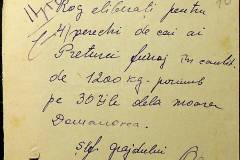 Rog eliberați pentru
4 perechi de cai ai
Preturei furaj în cantit.
de 1200 kg. porumb
pe 30 zile dela moara
Domanovca.
Șef. grajdului